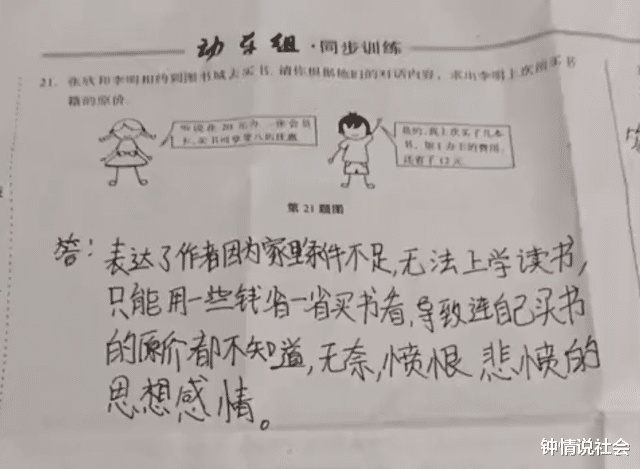 动车组·同步训练
21. 张欣和李明相约到图书城去买书. 请你根据他们的对话内容, 求出李明上次所买书
籍的原价.
听说花 20 元办一张会员
卡, 买书可享受八折优惠.
是的, 我上次买了几本
书, 加上办卡的费用,
还省了 12 元.
第 21 题图
答: 表达了作者因为家里条件不足, 无法上学读书,
只能用一些钱省一省买书看, 导致连自己买书
的原价都不知道, 无奈, 愤恨 悲愤的
思想感情。
钟情说社会